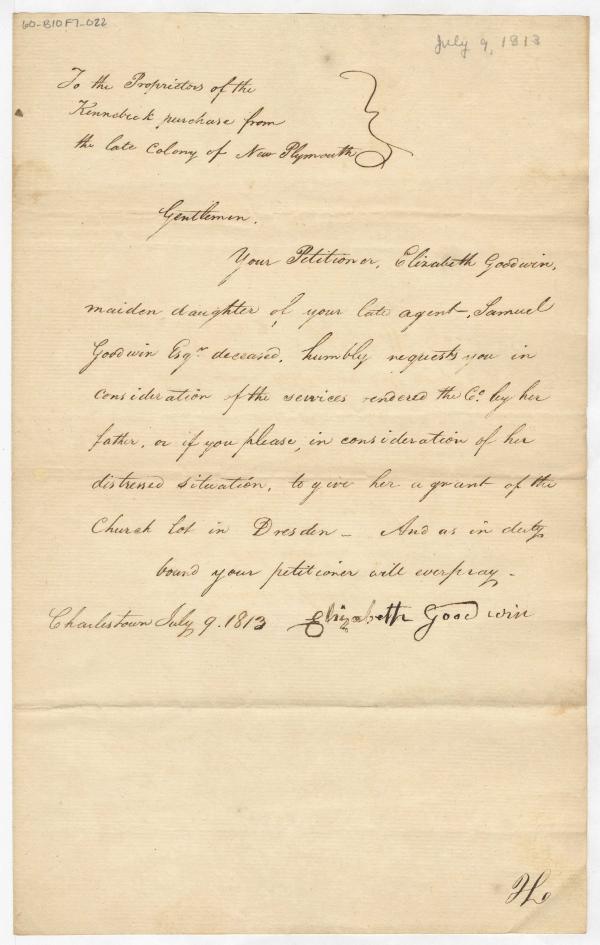 60-B10F7-022
July 9, 1813
To the Proprietors of the
Kennebeck purchase from
the late Colony of New Plymouth
Gentlemen.
Your Petitioner, Elizabeth Goodwin,
maiden daughter of your late agent, Samuel
Goodwin Esqr. deceased, humbly requests you in
consideration of the services rendered the Co. by her
father, or if you please, in consideration of her
distressed situation, to give her a grant of the
Church lot in Dresden – And as in duty
bound your petitioner will ever pray –
Charlestown July 9. 1813 Elizabeth Goodwin